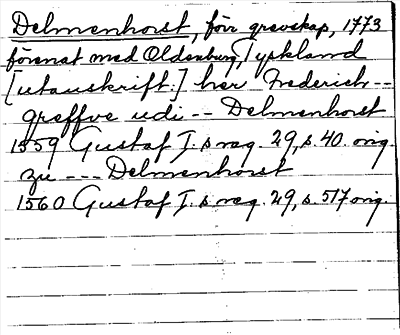 Delmenhorst, förr grevskap, 1773
förenat med Oldenburg, Tyskland
[utanskrift:] her Frederich --
greffve udi -- Delmenhorst
1559 Gustaf I.s reg. 29, s. 40. orig.
zu --- Delmenhorst
1560 Gustaf I.s reg. 29, s. 517 orig.